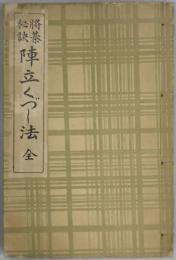 将棊秘訣
陣立くづし法 全